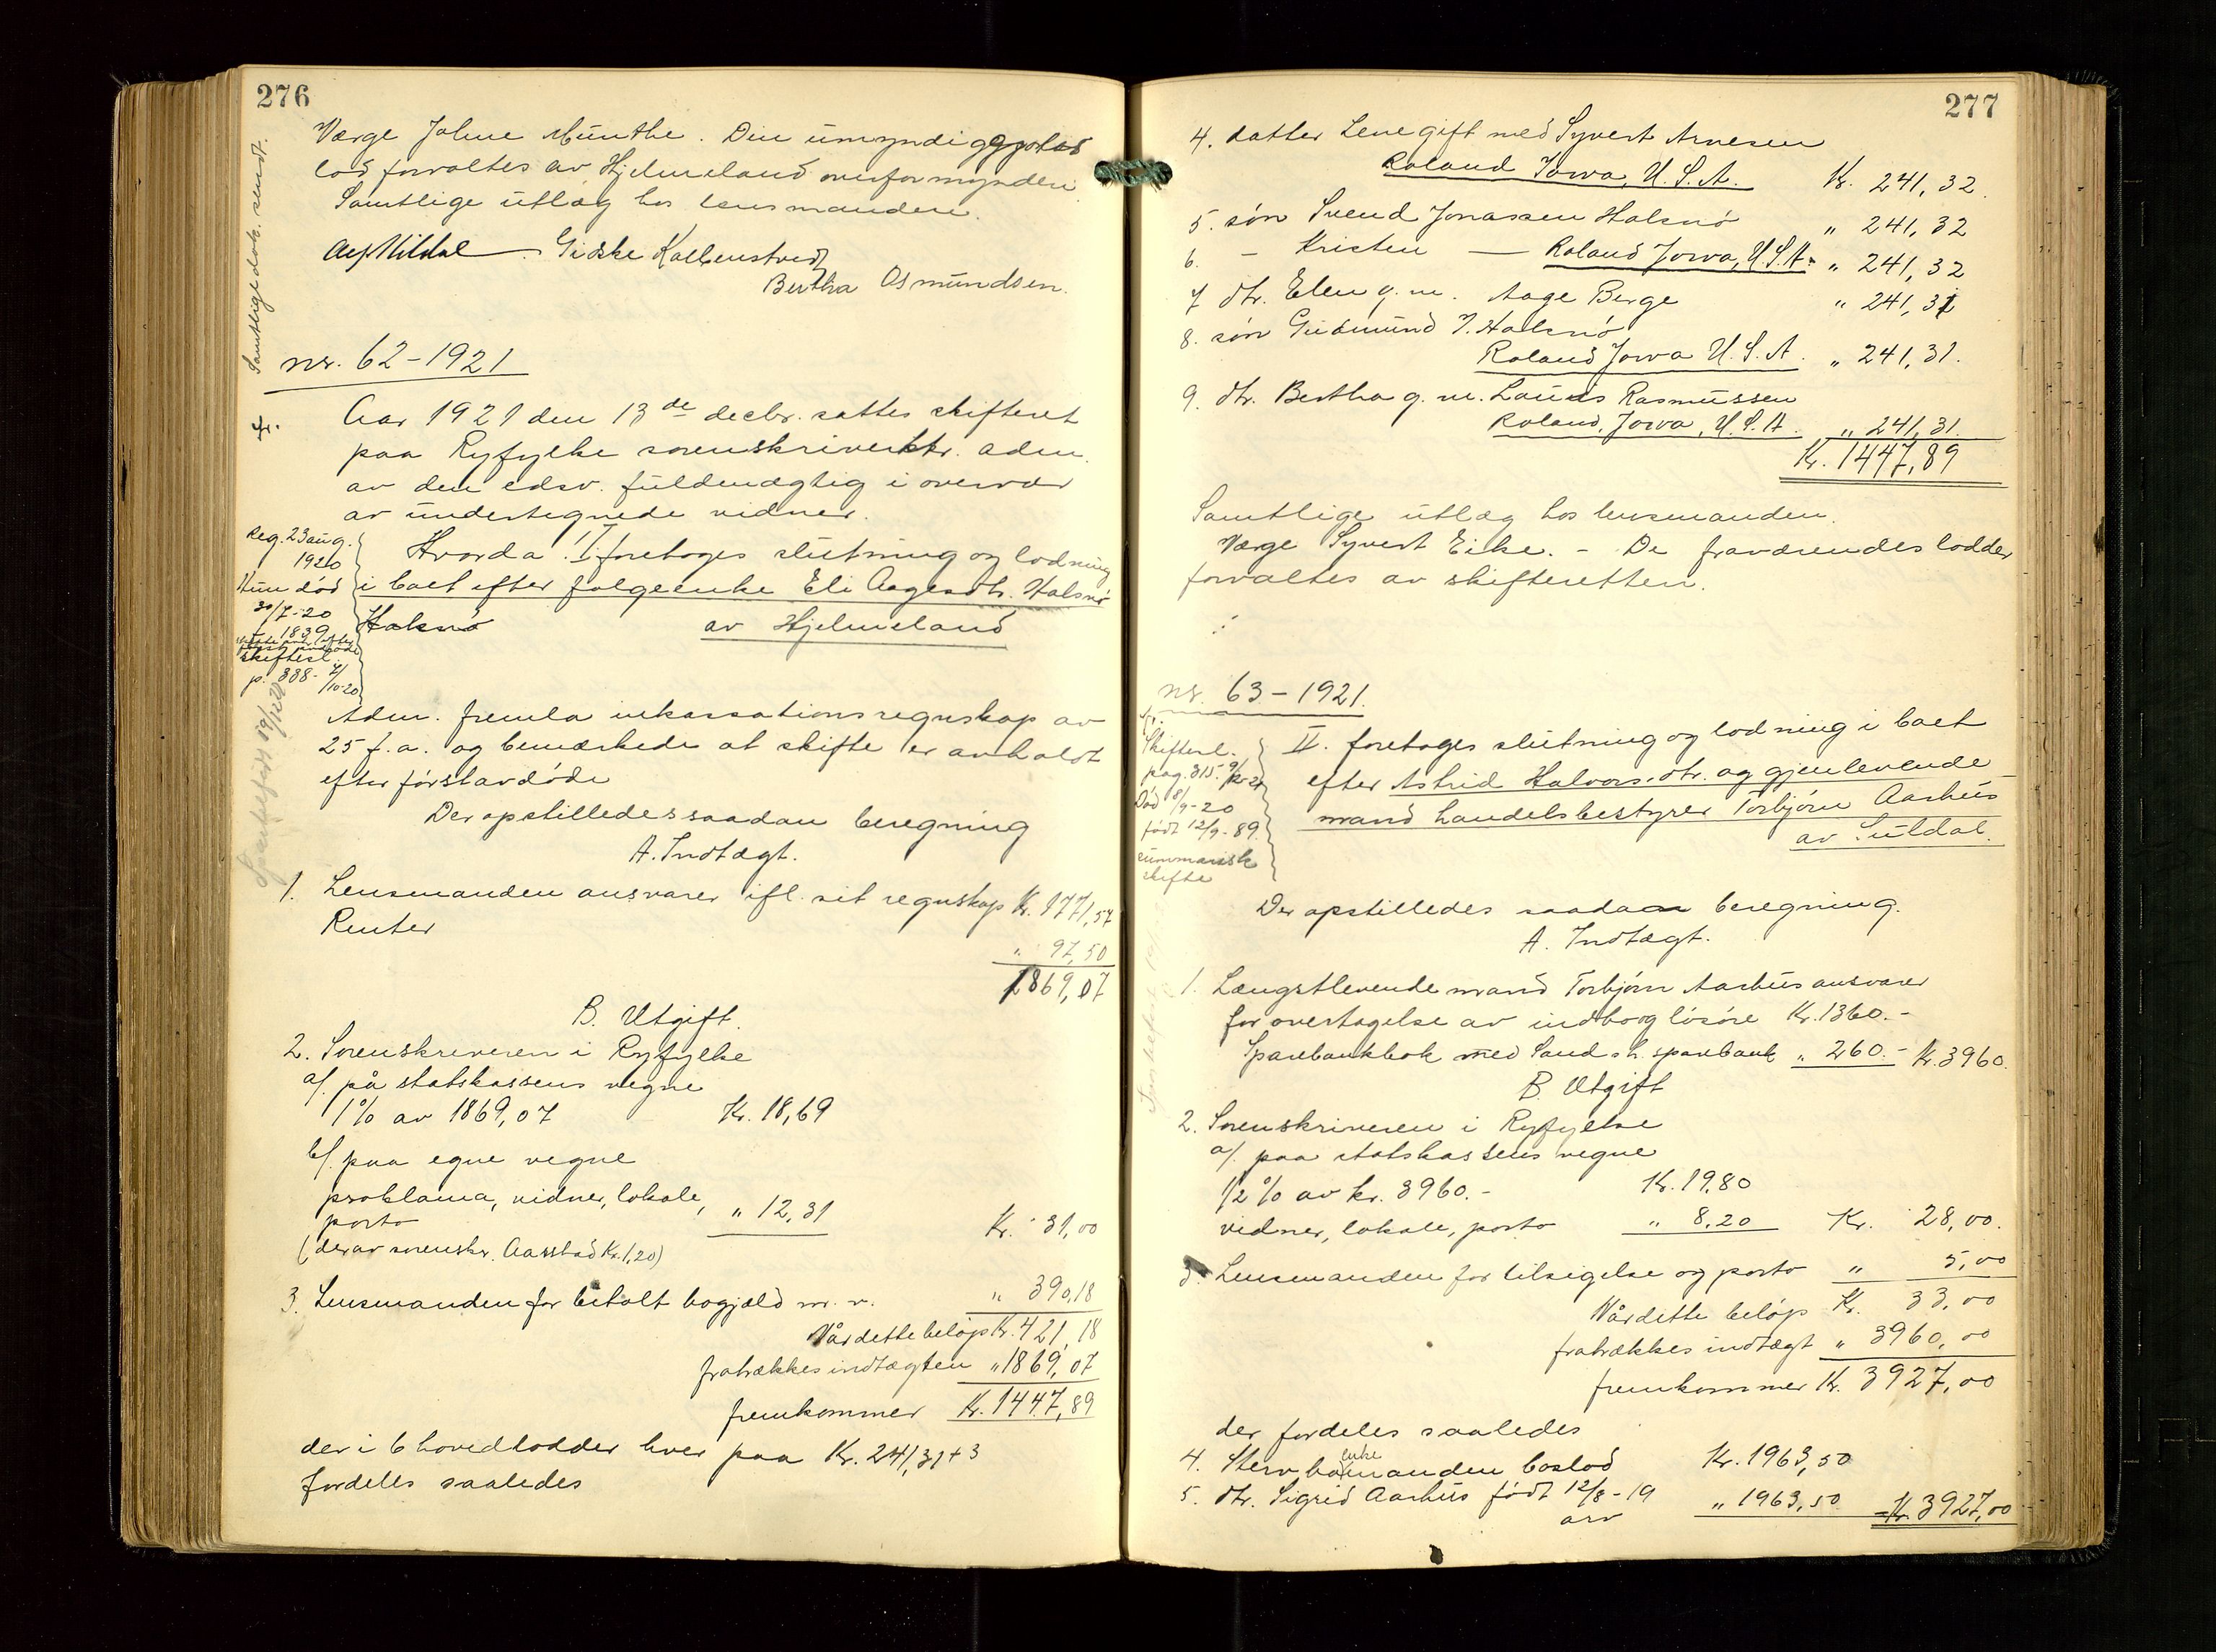 276
Værge Johne Münthe. Den umyndige
lod forvaltes av Hjelmeland overformynderi
Samtlige utlæg hos lensmanden.
Gidske Kolbenstvedt
Bertha Osmundsen.
Samtlige dok. sendt.
nr. 62-1921
Aar 1921 den 13de decbr. sattes skifteret
paa Ryfylke sorenskriverktr. adm.
av den edsv. fuldmægtig i overvær
av undertegnede vidner.
Reg. 23 aug.
1920
Hun død
30/7-20
1839
skiftesl.
p. 338-
/10-20
Hvorda: I foretoges slutning og lodning
i boet efter folgeenke Eli Aagesdtr. Halsnø
Halsnø av Hjelmeland
Adm. fremla inkassationsregnskap av
25 f.a. og bemærkede at skifte er avholdt
efter førstavdøde
Der opstilledes saadan beregning
A. Indtægt.
1. Lensmanden ansvarer ifl. sit regnskap Kr. 1771,57
Renter
" 97,50
1869,07
B. Utgift.
2. Sorenskriveren i Ryfylke
a/. på statskassens vegne
1% av 1869,07 Kr. 18,69
b/. paa egne vegne
proklama, vidner, lokale, " 12,31 Kr. 31,00
porto
(derav sorenskr. Aarstad Kr. 1,20)
3. Lensmanden for betalt bogjæld m. v. " 390,18
Når dette beløp Kr. 421,18
fratrækkes indtægten " 1869,07
fremkommer Kr. 1447,89
der i 6 hovedlodder hver paa Kr. 241,31 + 3
fordeles saaledes
277
4. datter Lene gift med Syvert Arnesen
Roland Jowa, U. S. A. Kr. 241,32
5. søn Svend Jonassen Halsnø " 241,32
6. - Kristen — Roland Jowa, U. S. A. " 241,32
7 dtr. Elen g. m. Aage Berge " 241,31
8. søn Gudmund J. Halsnø
Roland Jowa U. S. A. " 241,31.
9. dtr. Bertha g. m. Lauris Rasmussen
Roland, Jowa, U. S. A. " 241,31.
Kr. 1447,89
Samtlige utlæg hos lensmanden.
Værge Syvert Eike. - De fraværendes lodder
forvaltes av skifteretten.
nr. 63-1921.
Skiftesl.
pag. 315.
Død 8/9-20
født 12/9-89.
summarisk
skifte
II. foretoges slutning og lodning i boet
efter Astrid Halvorsdtr. og gjenlevende
mand handelsbestyrer Torbjørn Aarhus
av Suldal.
Der opstilledes saadan beregning.
A. Indtægt.
1. Længstlevende mand Torbjørn Aarhus ansvarer
for overtagelse av indbo og løsøre Kr. 1360.-
Sparebankbok med Sand s h. sparebank " 260.- Kr. 3960.
B. Utgift
2. Sorenskriveren i Ryfylke
a/. paa statskassens vegne
1/2% av kr. 3960.- Kr. 19,80
vidner, lokale, porto " 8,20 Kr. 28,00.
3. Lensmanden for tilsigelse og porto " 5,00
Når dette beløp Kr. 33,00
fratrækkes indtægt " 3960,00
fremkommer Kr. 3927,00
der fordeles saaledes
4. Stervboenkemanden boslod Kr. 1963,50
5. dtr. Sigrid Aarhus født 12/8-19 " 1963,50 Kr. 3927,00
arv